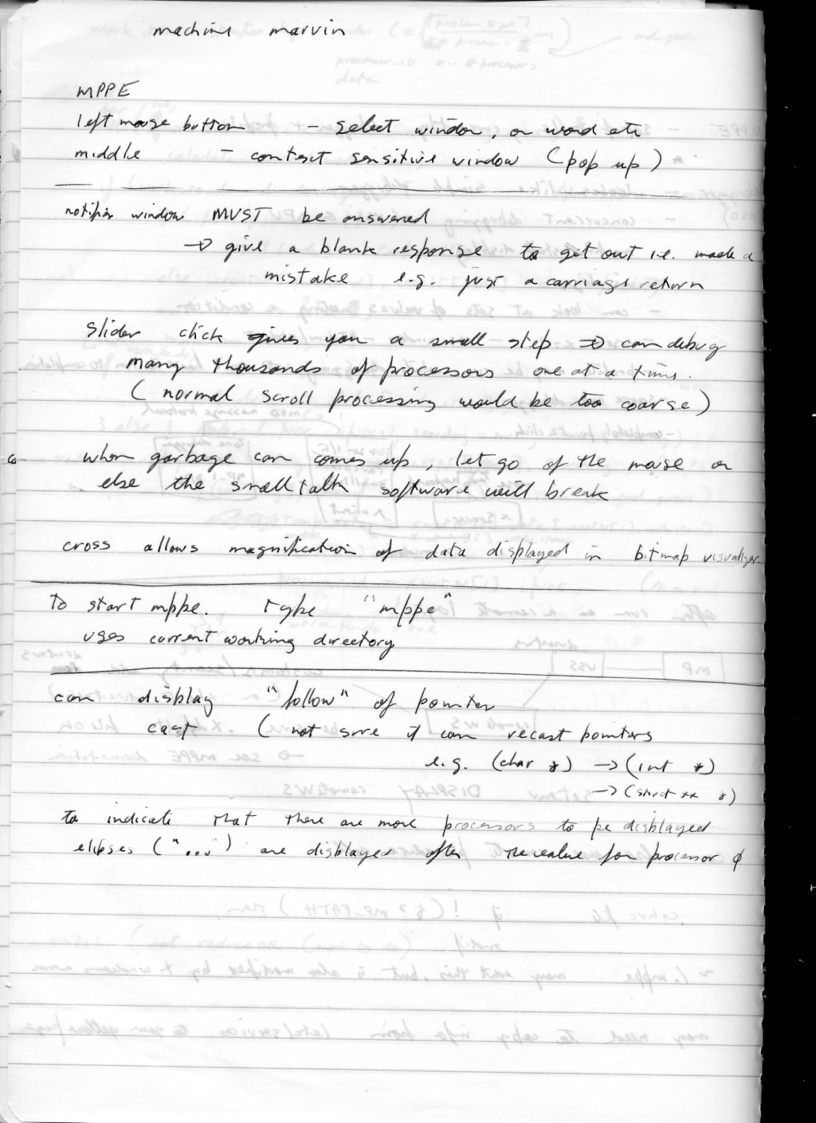 machine marvin
MPPE
left mouse button - select window, or word etc
middle - context sensitive window (pop up)
notifier window MUST be answered
→ give a blank response to get out i.e. made a
mistake e.g. just a carriage return
slider click gives you a small step ⇒ can debug
many thousands of processors one at a time.
(normal scroll processing would be too coarse)
when garbage can comes up, let go of the mouse or
else the smalltalk software will break
cross allows magnification of data displayed in bitmap visualizer.
To start mppe. Type "mppe"
uses current working directory
can display "follow" of pointer
cast (not sure it can recast pointers
e.g. (char *) → (int *)
→ (struct ** *)
to indicate that there are more processors to be displayed
elipses ("...") are displayed after the value for processor ϕ